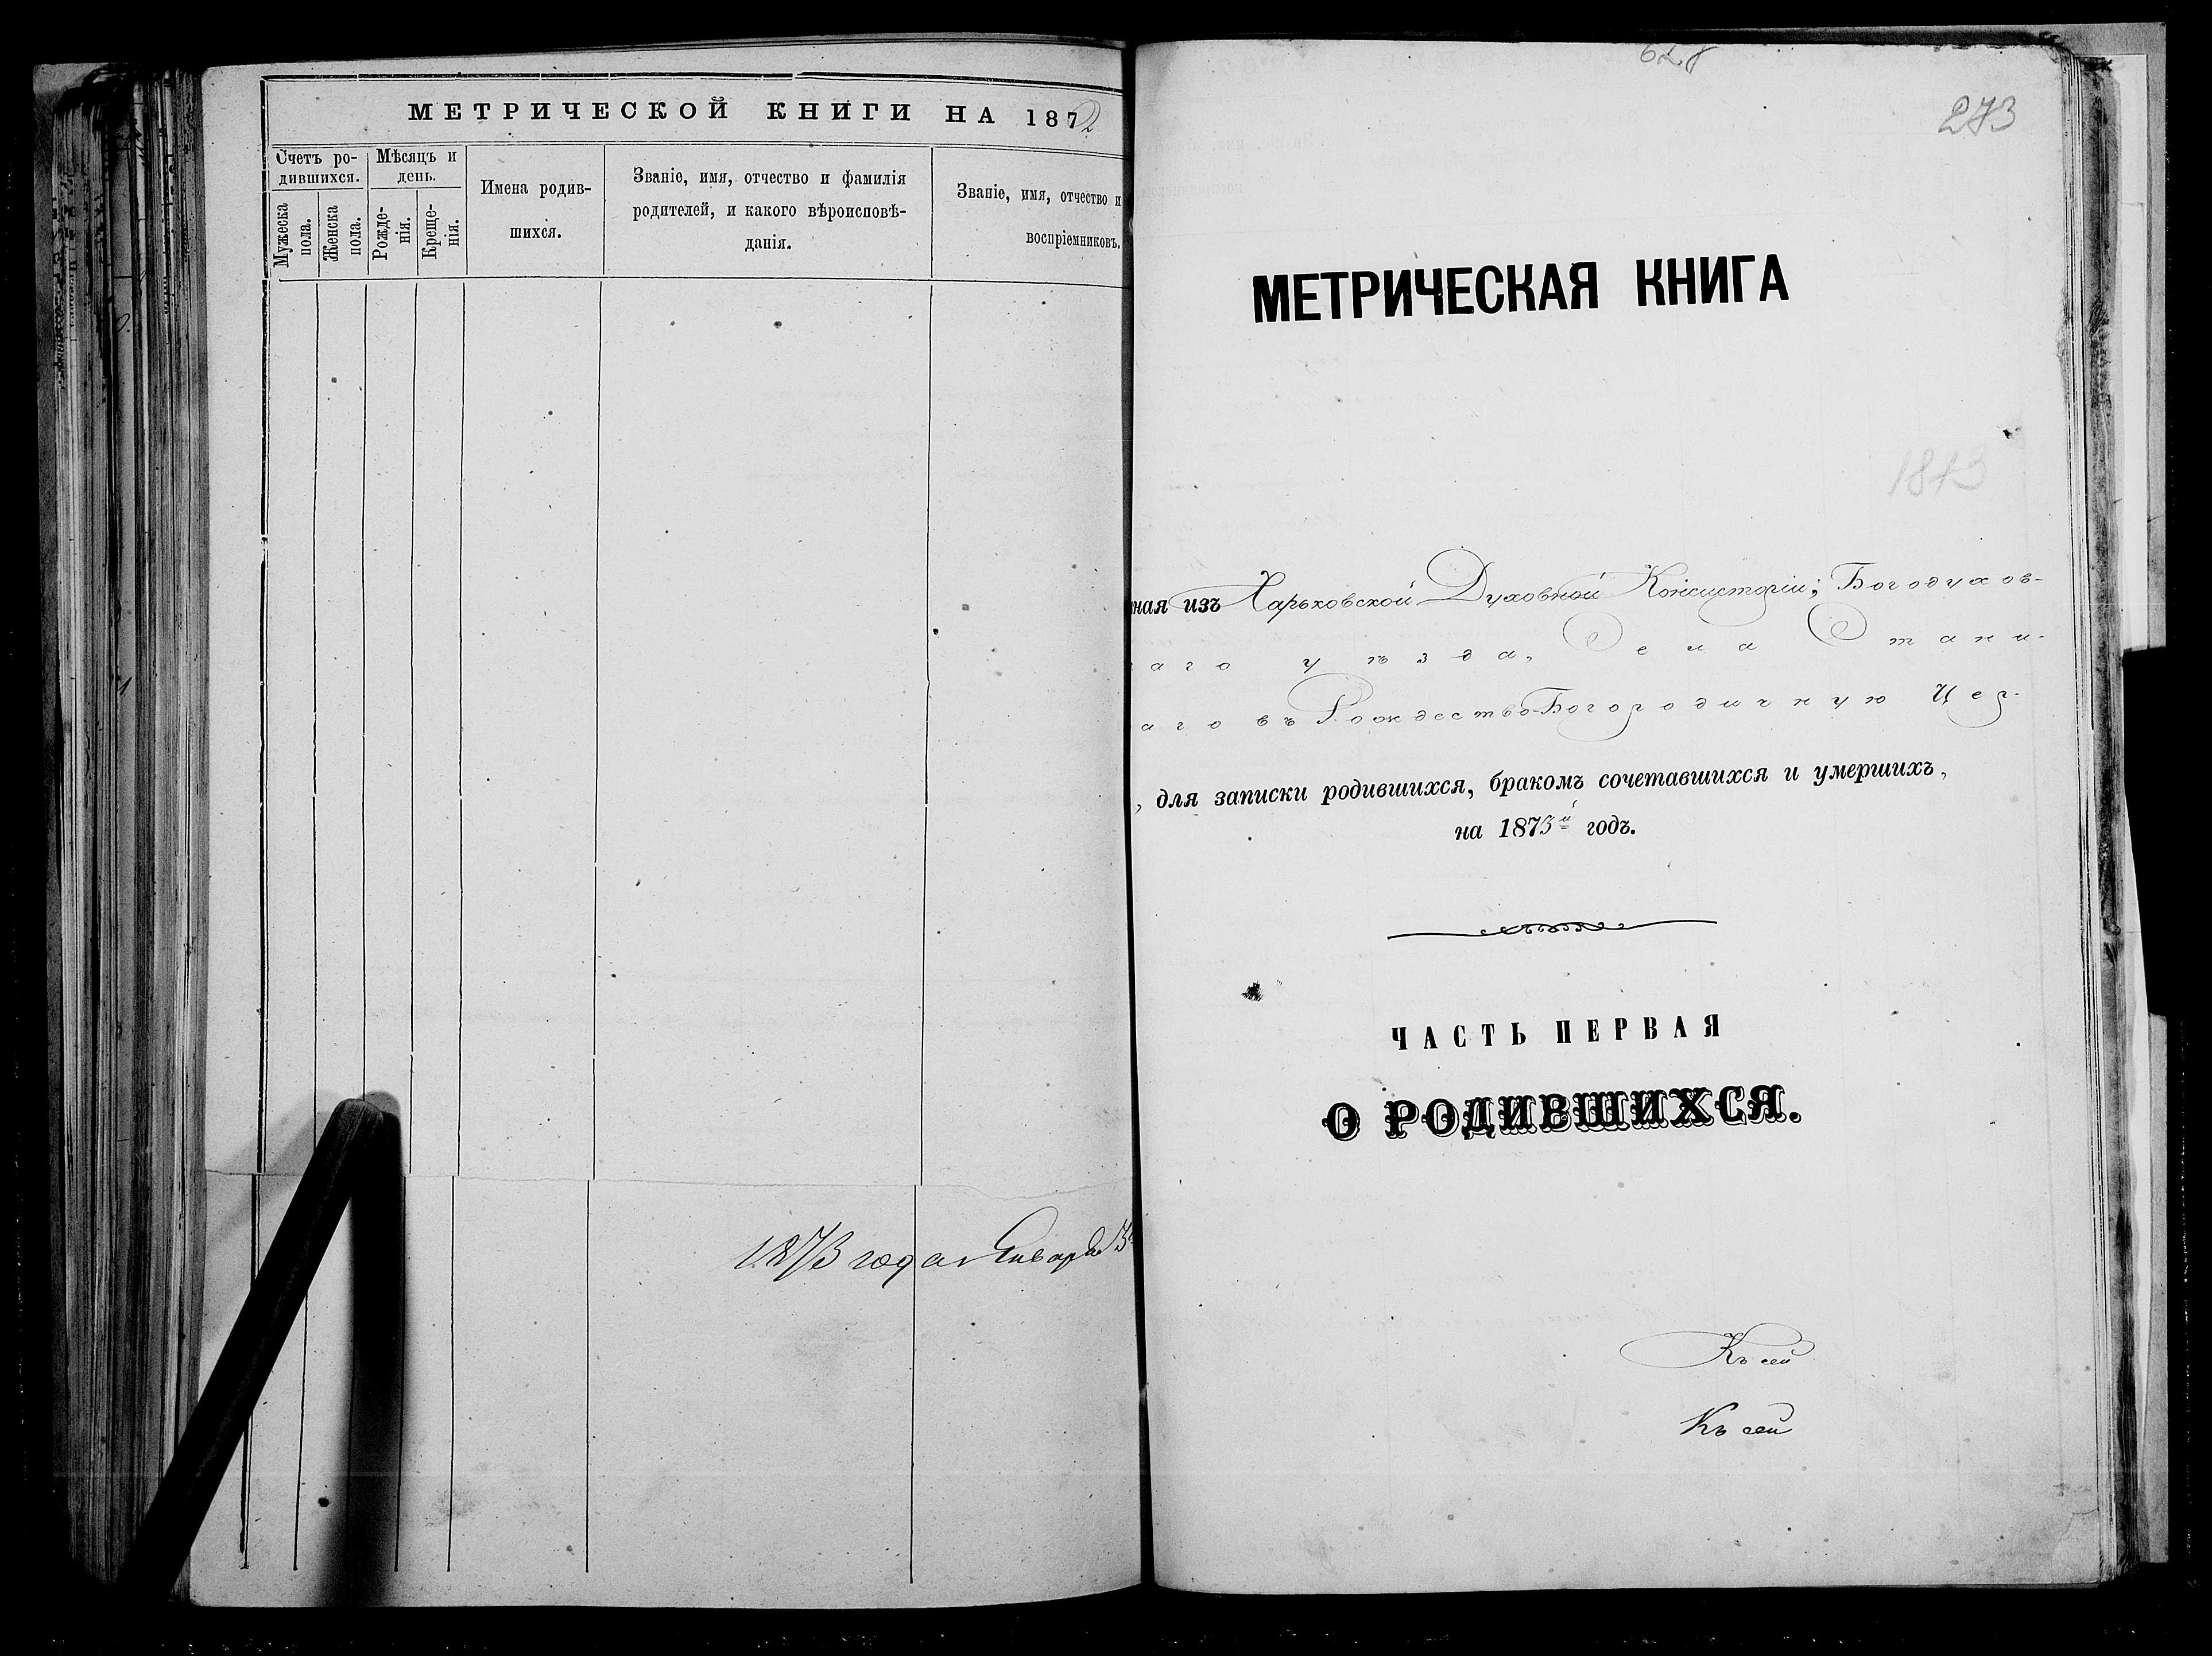 МЕТРИЧЕСКОЙ КНИГИ НА 1872
Счетъ ро-
дившихся.
Мужеска
пола.
Женска
пола.
Мѣсяцъ и
день.
Рожде-
нія.
Креще-
нія.
Имена родив-
шихся.
Званіе, имя, отчество и фамилія
родителей, и какого вѣроисповѣ-
данія.
Званіе, имя, отчество и
воспріемниковъ.
1873 года Января 3
628
273
МЕТРИЧЕСКАЯ КНИГА
1873
ная изъ Харьковской Духовной Консисторіи; Богодухов-
аго уѣзда, Села Стани-
аго въ Рождество-Богородичную Цер-
, для записки родившихся, бракомъ сочетавшихся и умершихъ,
на 1873й годъ.
ЧАСТЬ ПЕРВАЯ
О РОДИВШИХСЯ.
Къ сей
Къ сей